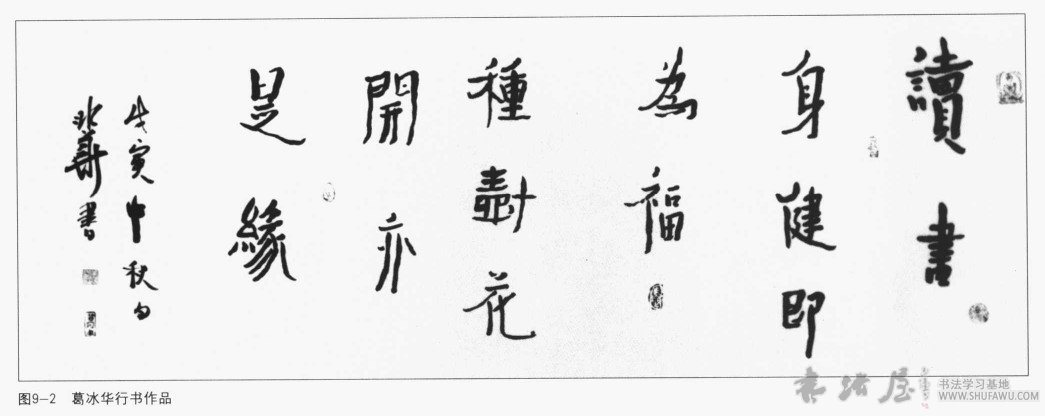 讀書
身健即
為福
種樹花
開亦
是緣
戊寅中秋白
冰華書
图9-2 葛冰华行书作品
书法屋
书法学习基地
WWW.SHUFAWU.COM